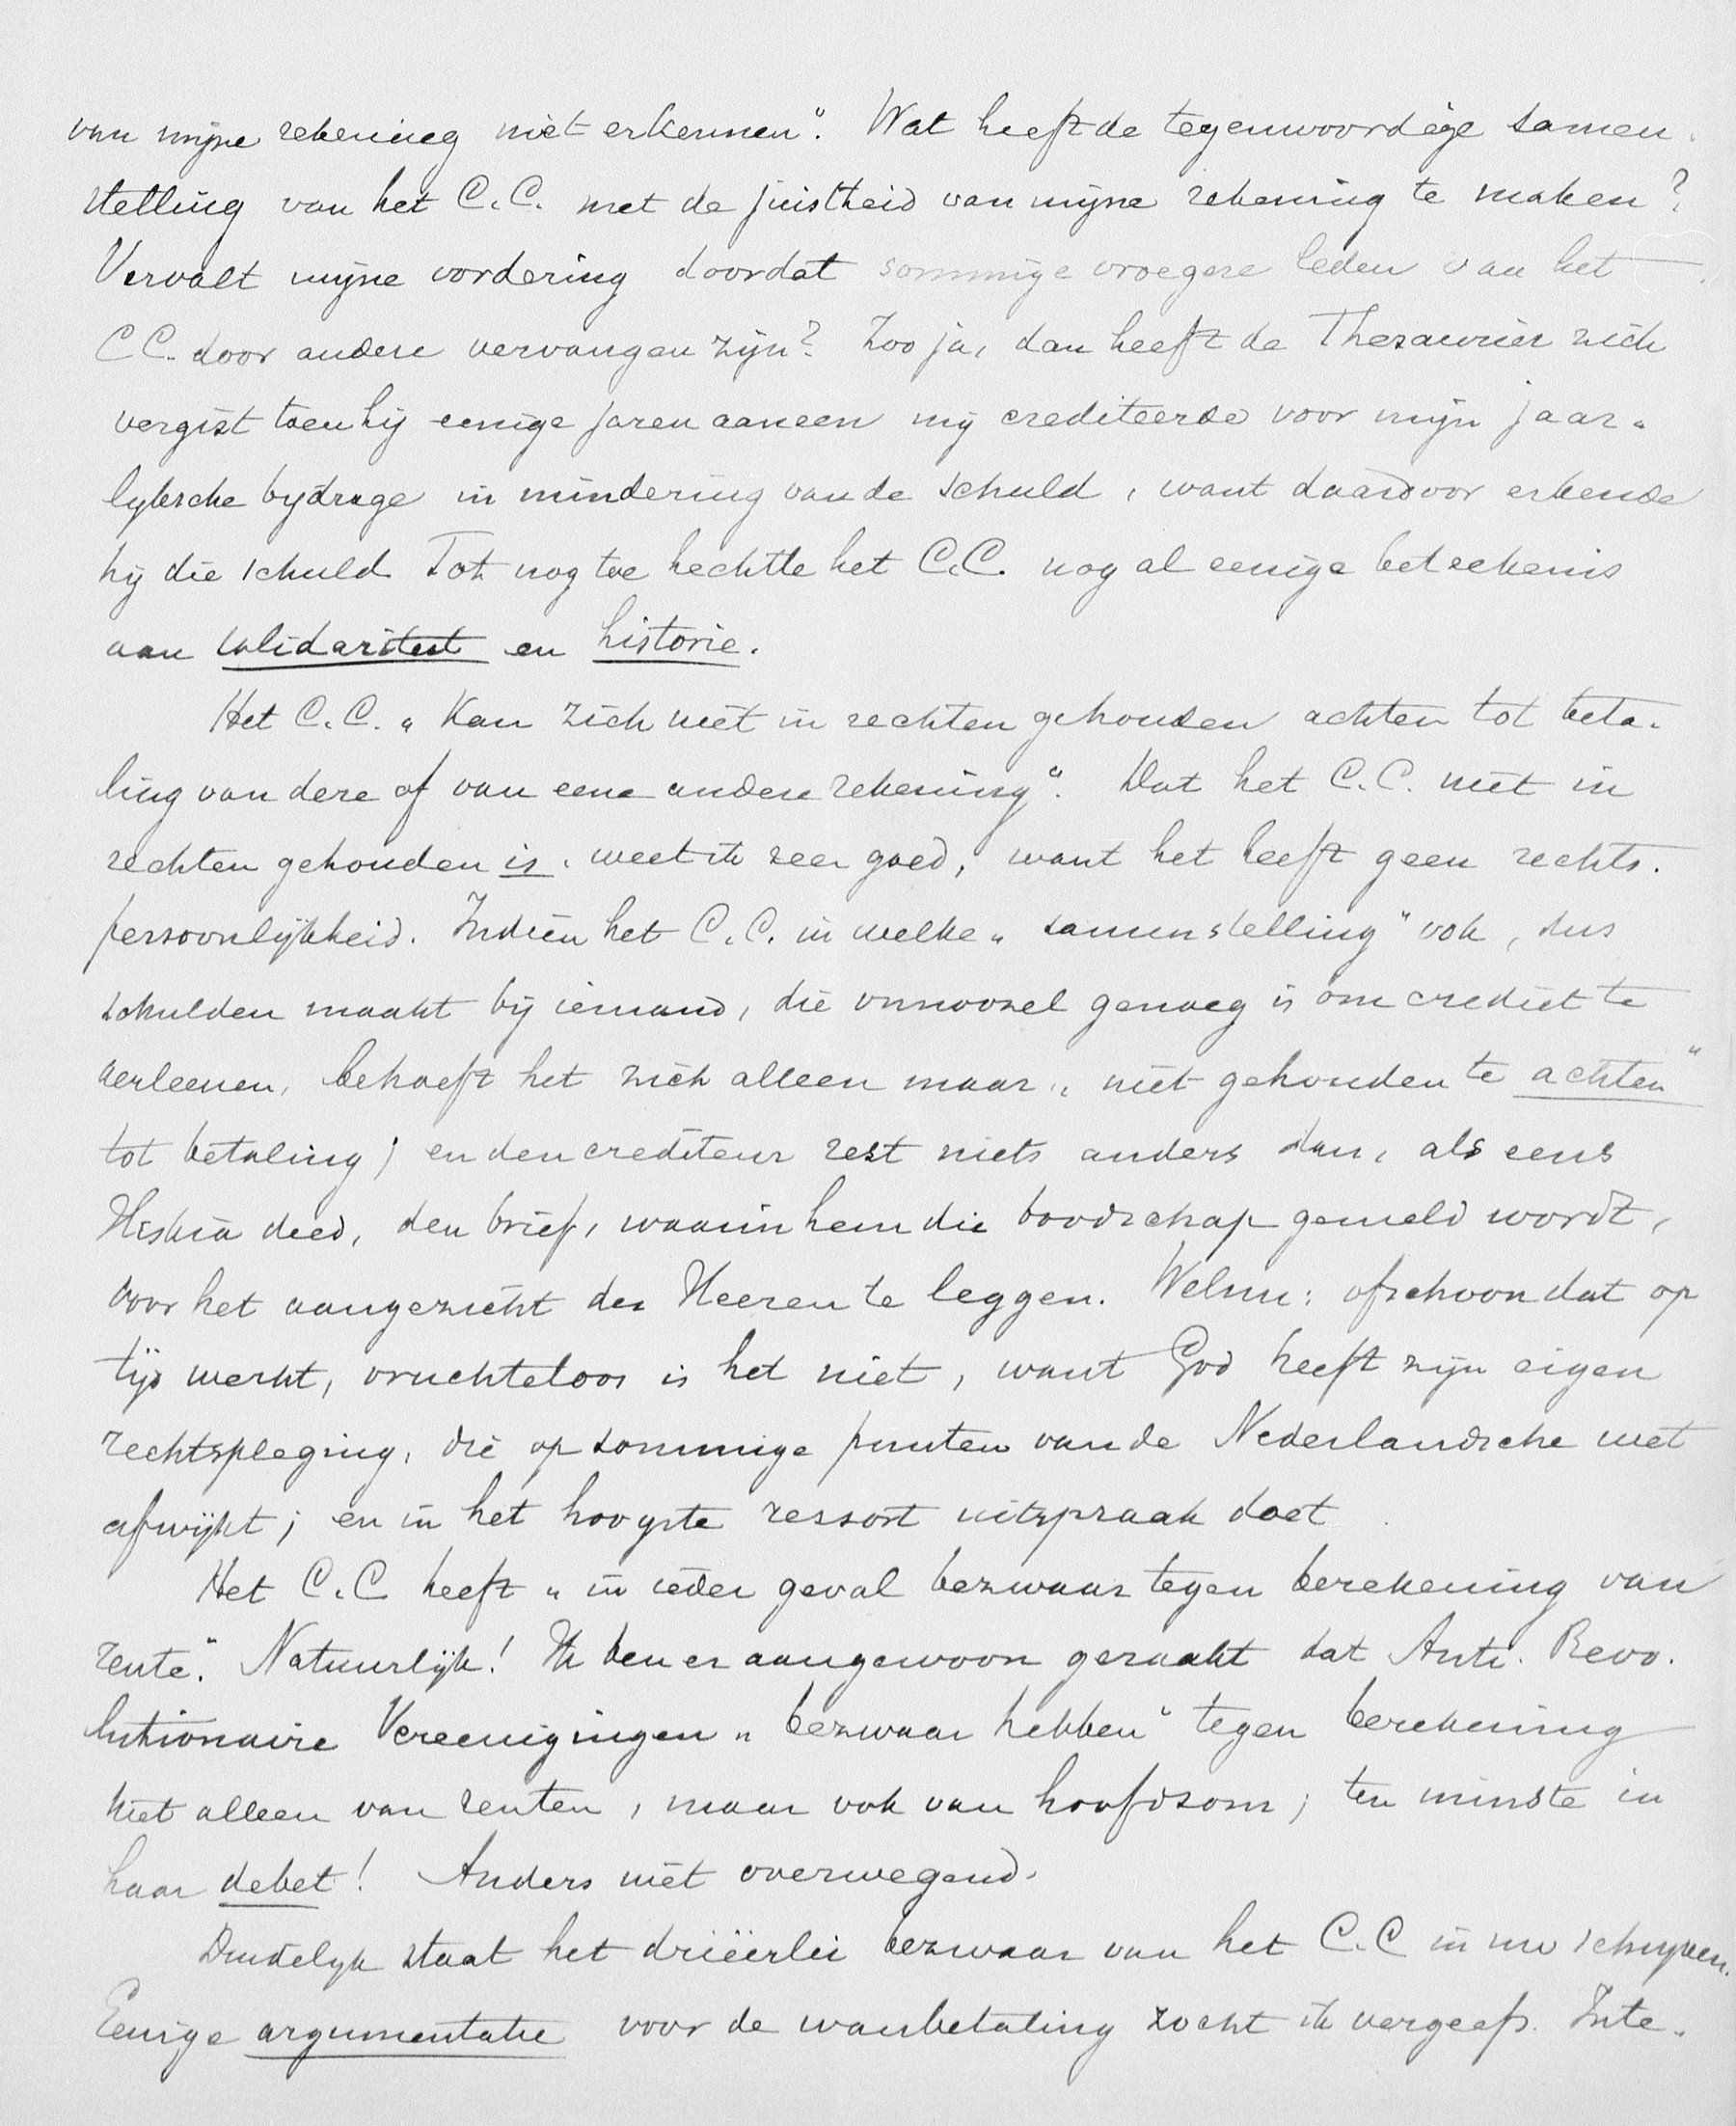 van mijne rekening niet erkennen". Wat heeft de tegenwoordige samen-
stelling van het C.C. met de juistheid van mijne rekening te maken?
Vervalt mijne vordering doordat sommige vroegere leden van het
C C. door andere vervangen zijn? Zoo ja, dan heeft de Thesaurier zich
vergist toen hij eenige jaren aaneen mij crediteerde voor mijn jaar-
lyksche bydrage in mindering van de schuld, want daardoor erkende
hij die schuld. Tot nog toe hechtte het C.C. nog al eenige beteekenis
aan solidariteit en historie.
Het C.C. „kan zich niet in rechten gehouden achten tot beta-
ling van deze of van eene andere rekening". Dat het C.C. niet in
rechten gehouden is, weet ik zeer goed, want het heeft geen rechts-
persoonlijkheid. Indien het C.C. in welke „samenstelling" ook, dus
schulden maakt bij iemand, die onnoozel genoeg is om crediet te
verleenen, behoeft het zich alleen maar „niet gehouden te achten"
tot betaling; en den crediteur rest niets anders dan, als eens
Hiskia deed, den brief, waarin hem die boodschap gemeld wordt,
voor het aangezicht des Heeren te leggen. Welnu: ofschoon dat op
tijd werkt, vruchteloos is het niet, want God heeft zijn eigen
rechtspleging, die op sommige punten van de Nederlandsche wet
afwijkt; en in het hoogste ressort uitspraak doet.
Het C.C. heeft „in ieder geval bezwaar tegen berekening van
rente". Natuurlijk! Ik ben er aangewoon geraakt dat Anti-Revo-
lutionaire Vereenigingen „bezwaar hebben" tegen berekening
niet alleen van renten, maar ook van hoofdsom; ten minste in
haar debet! Anders niet overwegend.
Duidelyk staat het drieërlei bezwaar van het C.C in uw schryven.
Eenige argumentatie voor de wanbetaling zocht ik vergeefs. Inte-